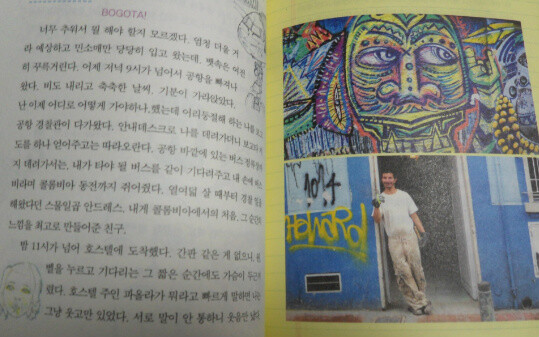 BOGOTA!
너무 추워서 뭘 해야 할지 모르겠다. 엄청 더울 거
라 예상하고 민소매만 당당히 입고 왔는데, 뱃속은 여전
히 꾸륵거린다. 어제 저녁 9시가 넘어서 공항을 빠져나
왔다. 비도 내리고 축축한 날씨, 기분이 가라앉았다.
난 이제 어디로 어떻게 가야하나..했는데 어리둥절해 하는 나를 보고
공항 경찰관이 다가왔다. 안내데스크로 나를 데려가더니
도를 하나 얻어주고는 따라오란다. 공항 바깥에 있는 버스
지 데려가서는, 내가 타야 될 버스를 같이 기다려주고 내 손에
바라며 콜롬비아 동전까지 쥐어줬다. 열여덟 살 때부터 경찰
해왔다던 스물일곱 안드레스. 내게 콜롬비아에서의 처음, 그 순간의
느낌을 최고로 만들어준 친구.
밤 11시가 넘어 호스텔에 도착했다. 간판 같은 게 없으니,
벨을 누르고 기다리는 그 짧은 순간에도 가슴이
렸다. 호스텔 주인 파올라가 뭐라고 빠르게 말하면 나는
그냥 웃고만 있었다. 서로 말이 안 통하니 웃음만